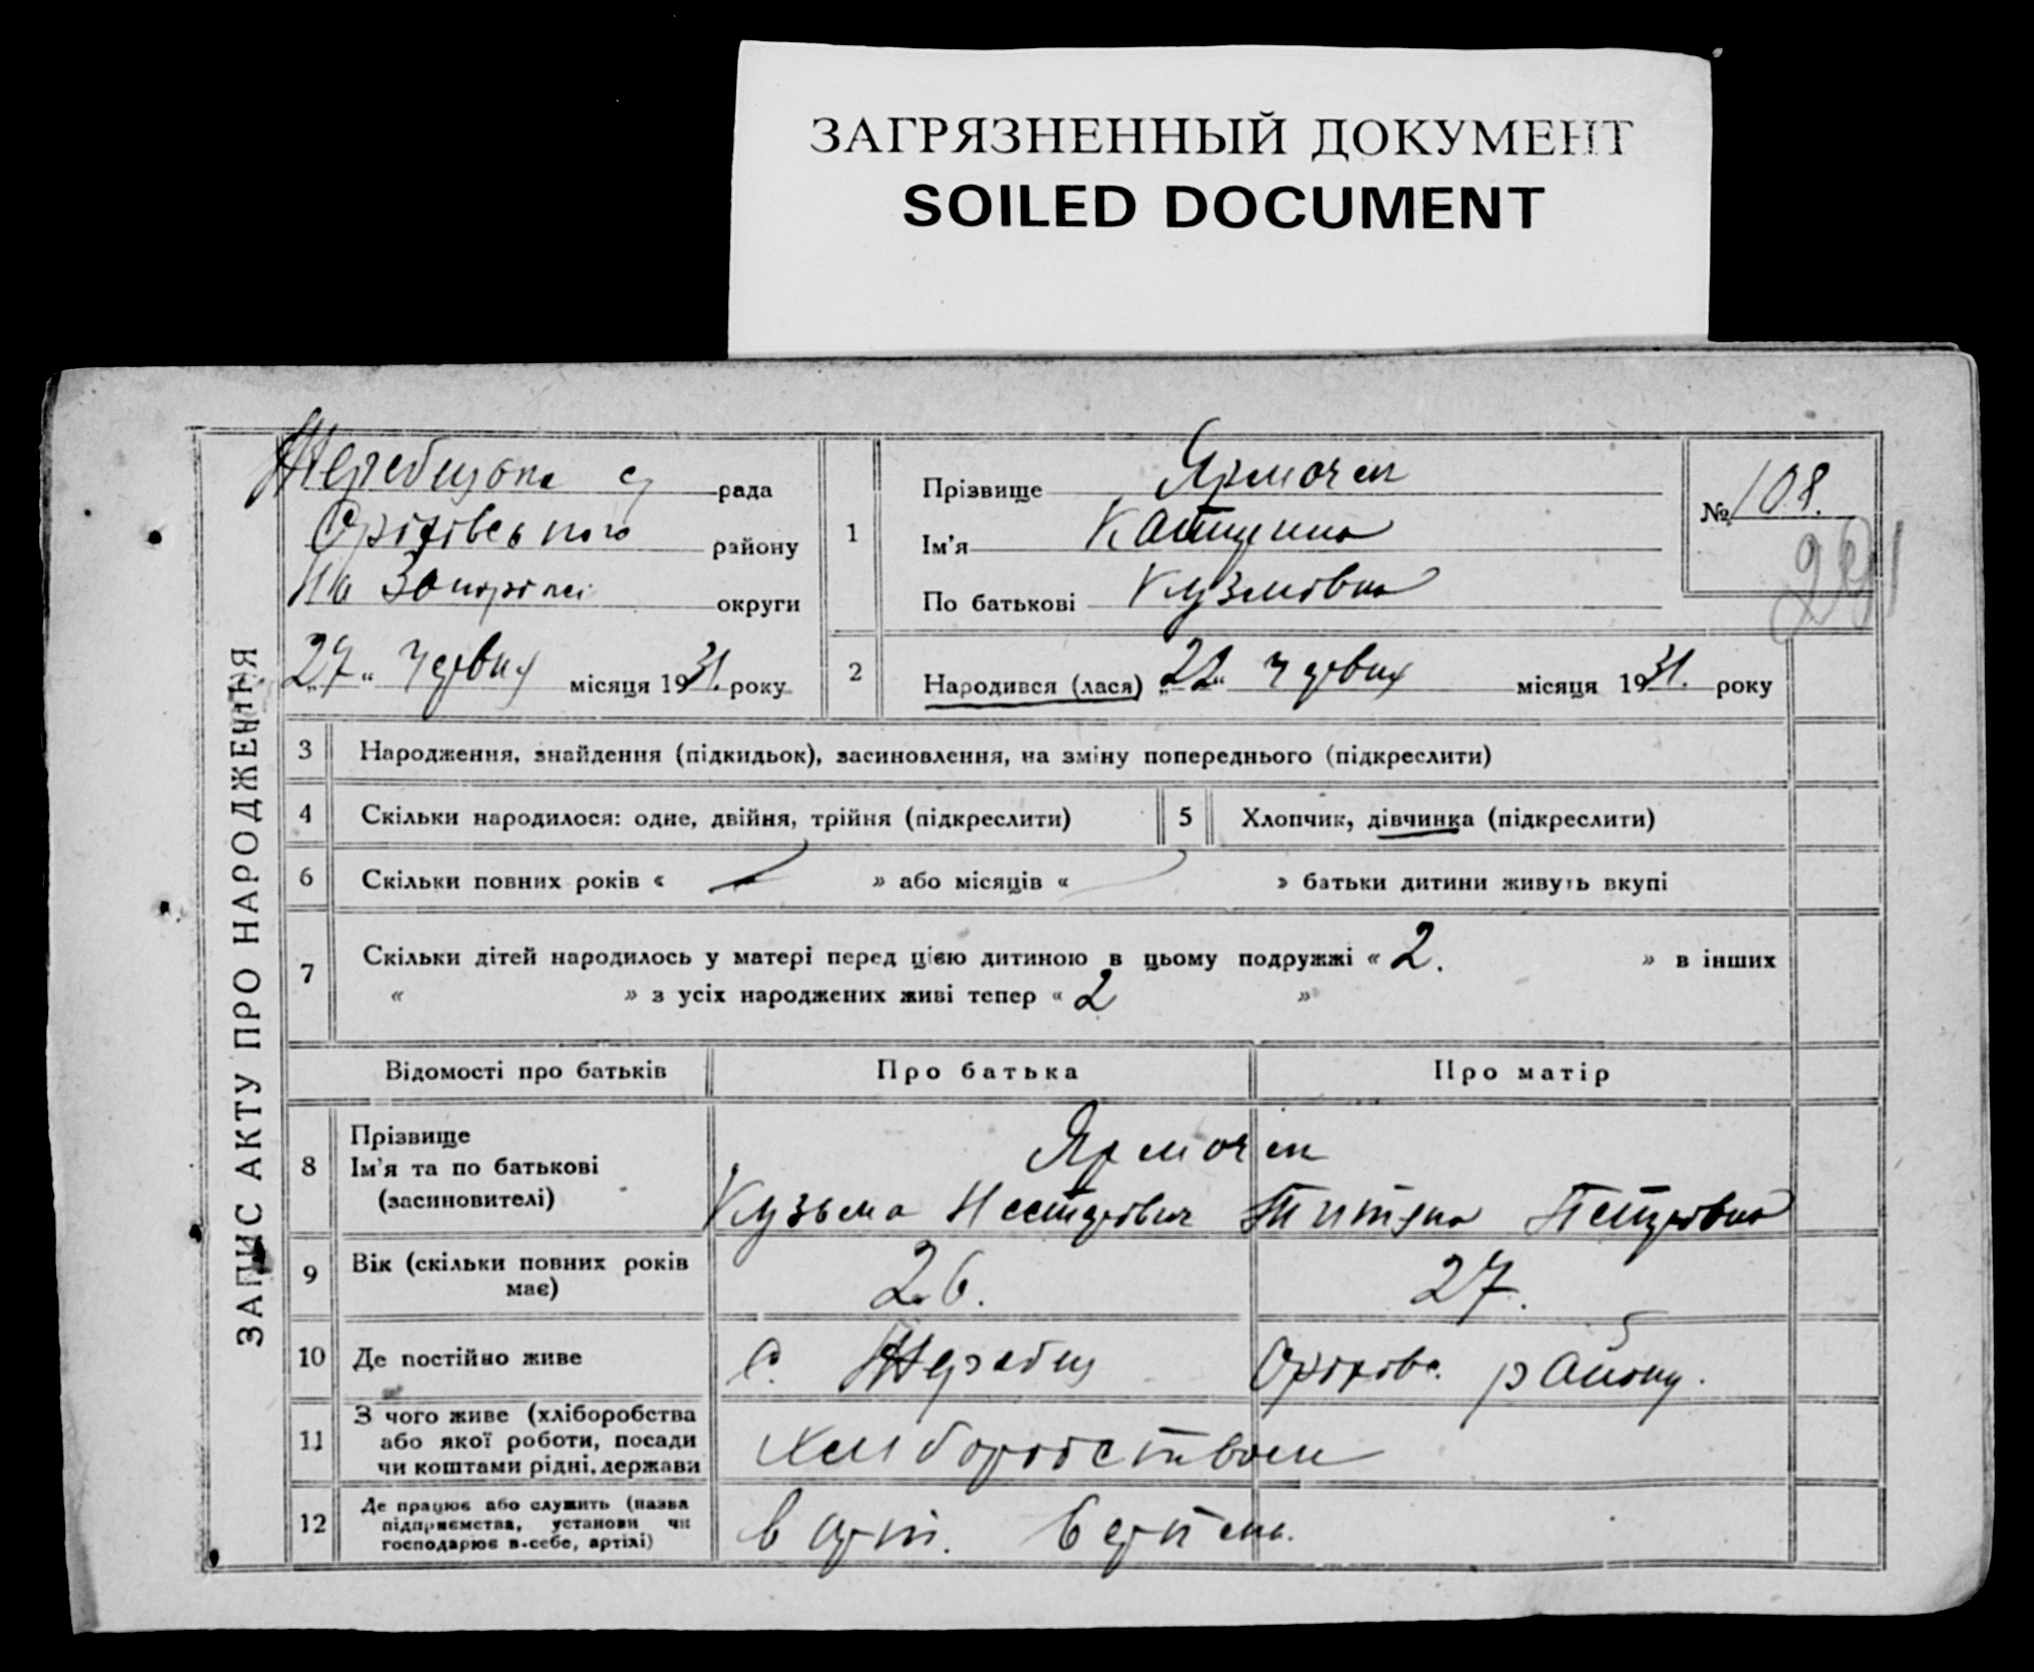 ЗАГРЯЗНЕННЫЙ ДОКУМЕНТ
SOILED DOCUMENT
ЗАПИС АКТУ ПРО НАРОДЖЕННЯ
рада
Оріхівського району
На Запоріжі округи
„27“ червня місяця 1931. року
1
Прізвище
Ім'я Катерина
По батькові Кузмівна
№ 108.
2
Народився (лася) „22“ червня місяця 1931. року
3 Народження, знайдення (підкидьок), засиновлення, на зміну попереднього (підкреслити)
4 Скільки народилося: одне, двійня, трійня (підкреслити)
5 Хлопчик, дівчинка (підкреслити)
6 Скільки повних років « » або місяців « » батьки дитини живуть вкупі
7 Скільки дітей народилось у матері перед цією дитиною в цьому подружжі « 2. » в інших
« » з усіх народжених живі тепер « 2 »
Відомості про батьків Про батька Про матір
8 Прізвище
Ім'я та по батькові
(засиновителі)
Кузьма Нестерович Титяна Петровна
9 Вік (скільки повних років
має)
26. 27.
10 Де постійно живе с. Жеребец Оріхівс. району.
11 З чого живе (хліборобства
або якої роботи, посади
чи коштами рідні, держави
Хліборобством
12 Де працює або служить (назва
підприємства, установи чи
господарює в-себе, артілі)
в арт.